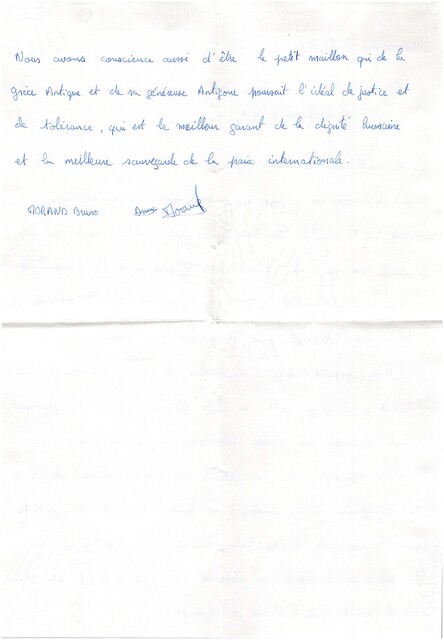 Nous avons conscience aussi d'être le petit maillon qui de la
grèce Antique et de sa généreuse Antigone poursuit l'idéal de justice et
de tolérance, qui est le meilleur garant de la dignité humaine
et la meilleure sauvegarde de la paix internationale.
MORAND Bruno Bruno Morand